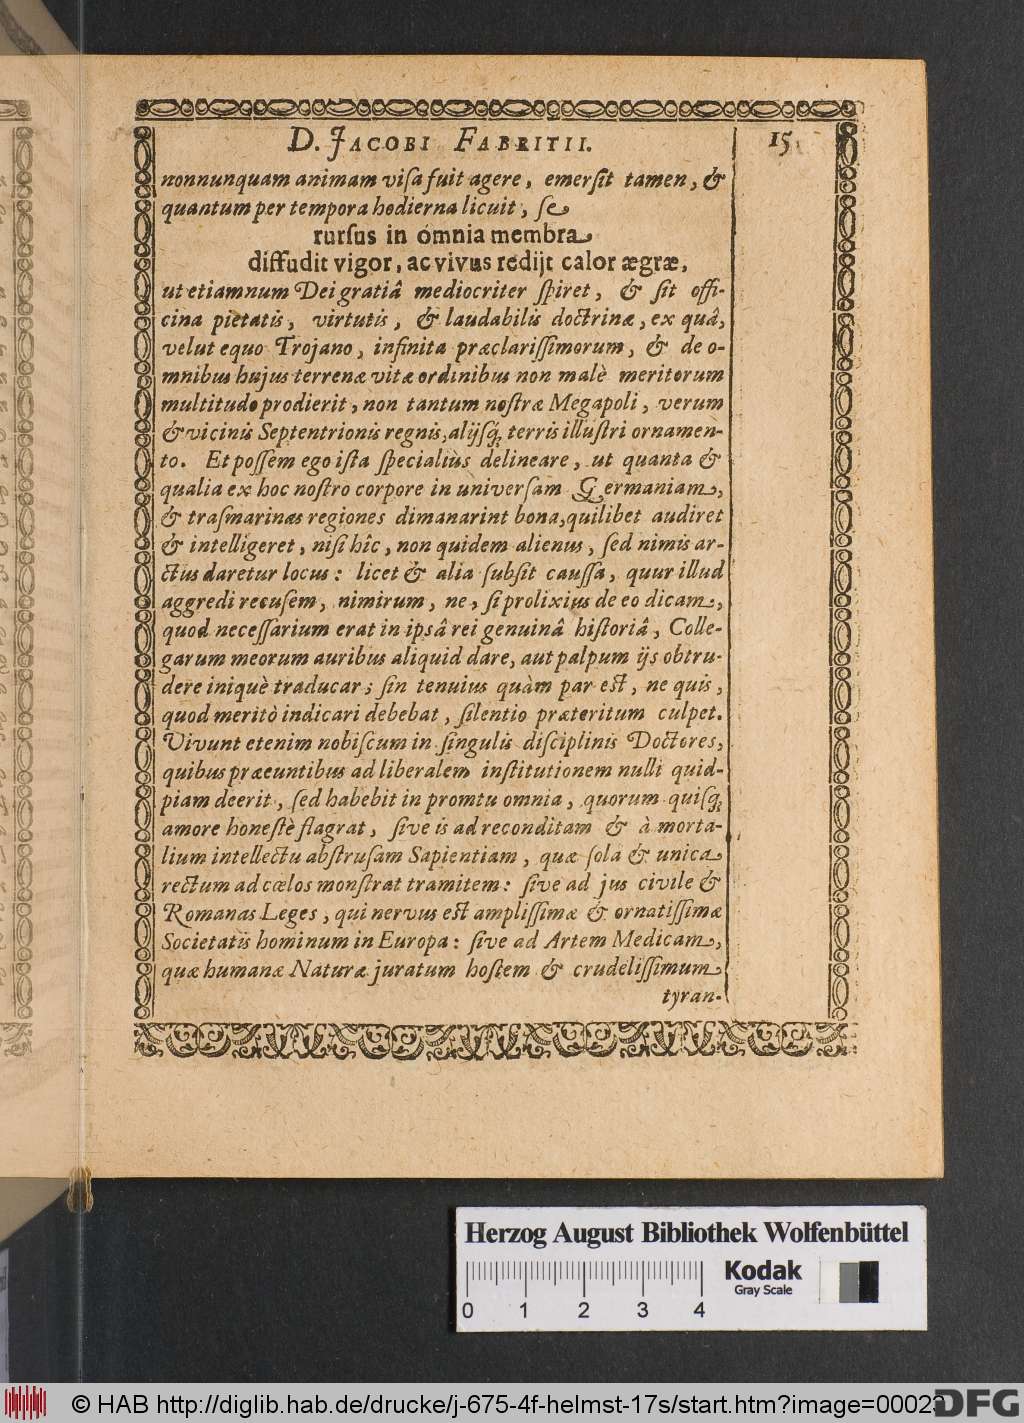 D. JACOBI FABRITII. 15
nonnunquam animam visa fuit agere, emersit tamen, &
quantum per tempora hodierna licuit, se
rursus in omnia membra
diffudit vigor, ac vivus redijt calor ægræ,
ut etiamnum Dei gratiâ mediocriter spiret, & sit offi-
cina pietatis, virtutis, & laudabilis doctrinæ, ex quâ,
velut equo Trojano, infinita præclarissimorum, & de o-
mnibus hujus terrenæ vitæ ordinibus non malè meritorum
multitudo prodierit, non tantum nostræ Megapoli, verum
& vicinis Septentrionis regnis, alijsq́; terris illustri ornamen-
to. Et possem ego ista specialiùs delineare, ut quanta &
qualia ex hoc nostro corpore in universam Germaniam,
& trasmarinas regiones dimanarint bona, quilibet audiret
& intelligeret, nisi hîc, non quidem alienus, sed nimis ar-
ctus daretur locus: licet & alia subsit caussa, quur illud
aggredi recusem, nimirum, ne, si prolixius de eo dicam,
quod necessarium erat in ipsâ rei genuinâ historiâ, Colle-
garum meorum auribus aliquid dare, aut palpum ijs obtru-
dere iniquè traducar; sin tenuius quàm par est, ne quis,
quod meritò indicari debebat, silentio præteritum culpet.
Vivunt etenim nobiscum in singulis disciplinis Doctores,
quibus præeuntibus ad liberalem institutionem nulli quid-
piam deerit, sed habebit in promtu omnia, quorum quisq;
amore honestè flagrat, sive is ad reconditam & à morta-
lium intellectu abstrusam Sapientiam, quæ sola & unica
rectum ad cœlos monstrat tramitem: sive ad jus civile &
Romanas Leges, qui nervus est amplissimæ & ornatissimæ
Societatis hominum in Europa: sive ad Artem Medicam,
quæ humanæ Naturæ juratum hostem & crudelissimum
tyran-
Herzog August Bibliothek Wolfenbüttel
Kodak
Gray Scale
0 1 2 3 4
© HAB http://diglib.hab.de/drucke/j-675-4f-helmst-17s/start.htm?image=00023
DFG